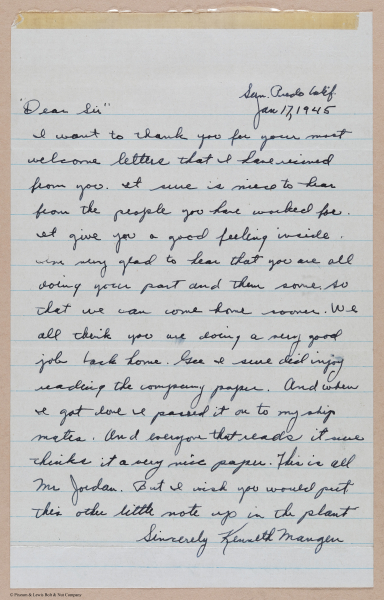 San. Pedro Calif.
Jan 17, 1945
"Dear Sir"
I want to thank you for your most
welcome letters that I have recived
from you. It sure is nice to hear
from the people you have worked for.
It give you a good feeling inside.
very glad to hear that you are all
doing your part and then some. so
that we can come home sooner. We
all think you are doing a very good
job back home. Gee I sure did injoy
reading the company paper. And when
I got done I passed it on to my ship
mates. And everyone that reads it sure
thinks it a very nice paper. This is all
Mr. Jordan. But I wish you would put
this other little note up in the plant
Sincerely Kenneth Mangen
© Pioneer & Lewis Bolt & Nut Company